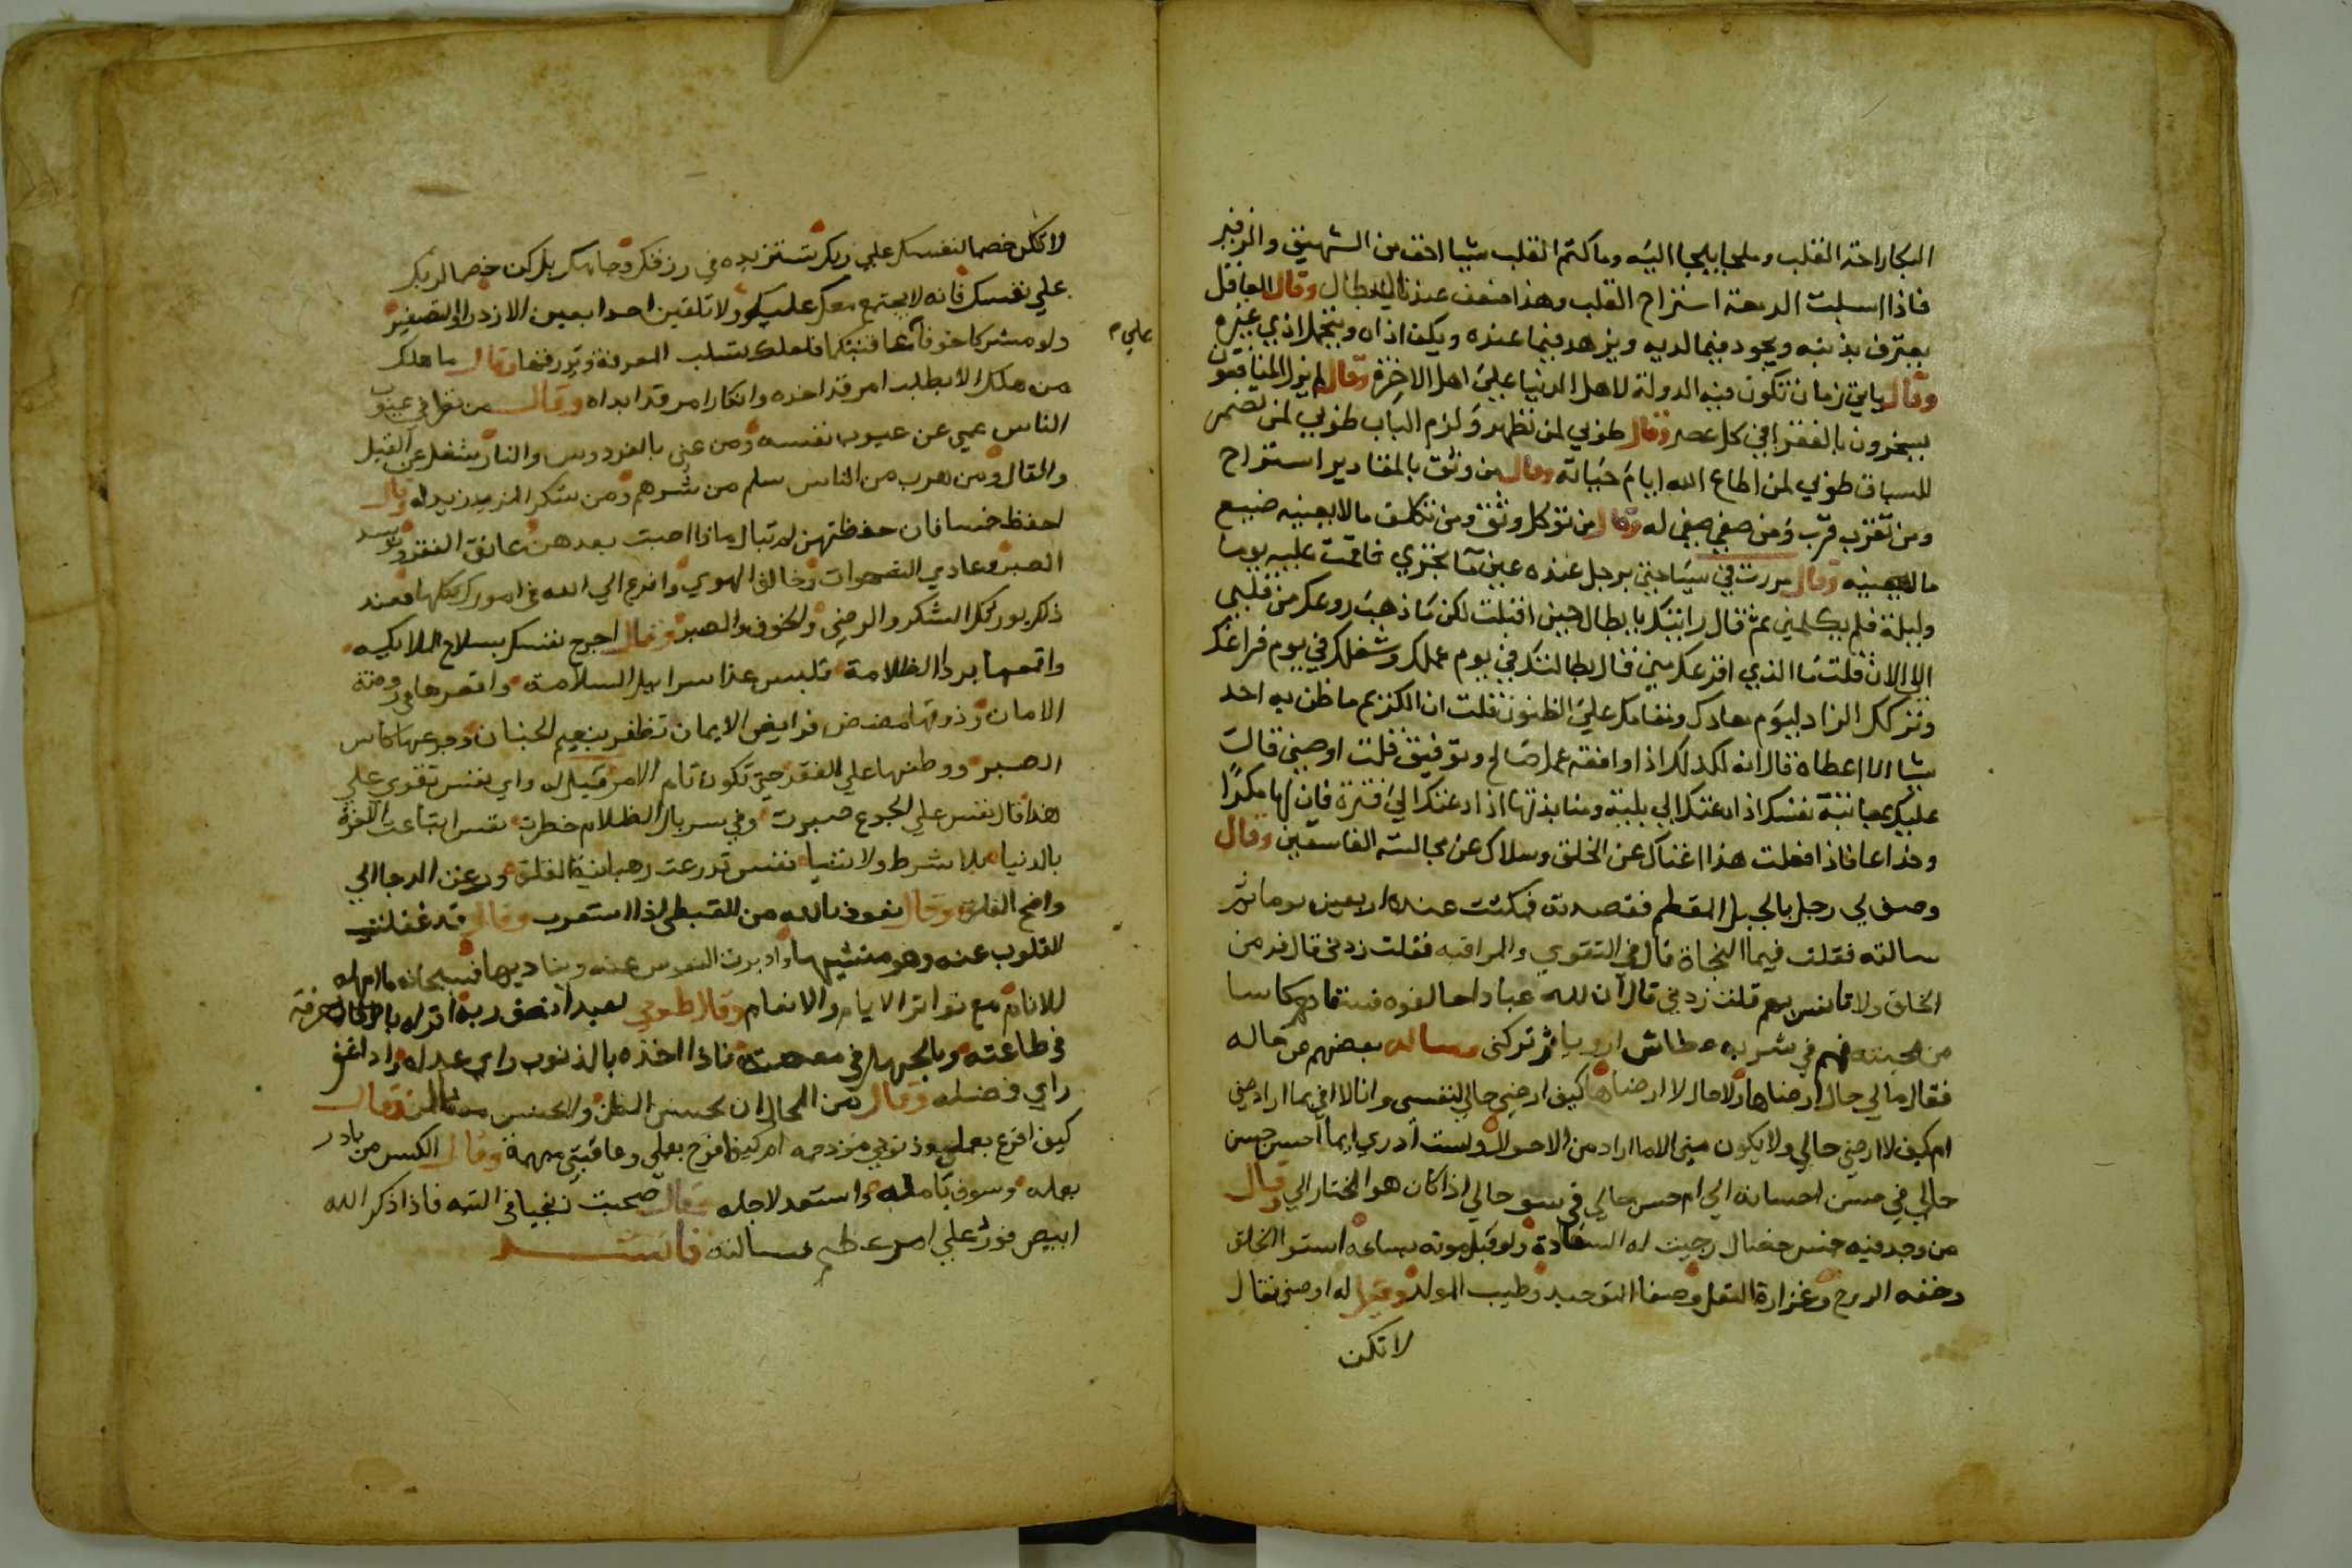 البكا راحة القلب وملجا يلجا اليه وما كتم القلب شيا احق من الشهيق والزفير
فاذا اسبلت الدمعة استراح القلب وهذا ضعف عندنا البطال وقال العاقل
يعترف بذنبه ويجود فيما لديه ويزهد فيما عنده ويكف اذاه ويتحمل اذي غيره
وقال ياتي زمان تكون فيه الدولة لاهل الدنيا علي اهل الاخرة وقال لم يزل المنافقون
يسخرون بالفقرا في كل عصر وقال طوبي لمن تطهر ولزم الباب طوبي لمن تضمر
للسباق طوبي لمن اطاع الله ايام حياته وقال من وثق بالمقادير استراح
ومن تقرب قرب ومن صفي صفي له وقال من توكل وثق ومن تكلف مالا يعنيه ضيع
ما يعنيه وقال مررت في سياحتي برجل عنده عين ما تجري فاقمت عليه يوما
وليلة فلم يكلمني ثم قال رايتك يا بطال حين اقبلت لكن ما ذهب روعك من قلبي
الي الان قلت ما الذي افزعك مني قال بطالتك في يوم عملك وشغلك في يوم فراغك
وتركك الزاد ليوم معادك ومقامك علي الظنون قلت ان الكريم ما ظن به احد
شيا الا اعطاه قال انه لكذلك اذا وافقه عمل صالح وتوفيق قلت اوصني قال
عليك بمجانبة نفسك اذا دعتك الي بلية ومنابذتها اذا دعتك الي فترة فان لها مكرا
وخداعا فاذا فعلت هذا اغناك عن الخلق وسلاك عن مجالسة الفاسقين وقال
وصف لي رجل بالجبل المقطم فقصدته فمكثت عنده اربعين يوما ثم
سالته فقلت فيما النجاة قال في التقوي والمراقبه فقلت زدني قال فر من
الخلق ولا تانس بهم قلت زدني قال ان لله عبادا خالفوه فسقاهم كاسا
من محبته فهم في شربه عطاش اروياء ثم تركني وساله بعضهم عن حاله
فقال مالي حال ارضاها ولا حال لا ارضاها كيف ارضي حالي لنفسي وانا لا اقي بما اراد مني
ام كيف لا ارضي حالي ولا يكون مني الا ما اراد من الاحوال ولست ادري ايما احسن حسن
حالي في حسن احسانه الي ام حسن حالي في سو حالي اذا كان هو المختار الي وقال
من وجد فيه خمس خصال رجيت له السعادة ولو قبل موته بساعة استوا الخلق
وخفه الروح وغزارة العقل وصفا التوحيد وطيب المولد وقيل له اوصني فقال
لا تكن
لا تكن خصما لنفسك علي ربك تستزيده في رزقك وجاهك بل كن خصما لربك
علي نفسك فانه لا يجتمع معك عليك ولا تلقين احدا بعين الازدرا والتصغير
ولو مشركا خوفا من عاقبتكما فلعلك تسلب المعرفة ويرزقها وقال ما هلك
علي م
من هلك الا بطلب امر قد اخده وانكار امر قد ابداه وقال من نظر في عيوب
الناس عمي عن عيوب نفسه ومن عني بالفردوس والنار شغل عن القيل
والقال ومن هرب من الناس سلم من شرهم ومن شكر المزيد زيد له وقال
احفظ خمسا فان حفظتهن لم تبال ماذا اصبت بعدهن عانق الفقر وتوسد
الصبر وعادي الشهوات وخالف الهوي وافزع الي الله في امورك كلها فعند
ذلك يورثك الشكر والرضي والخوف والصبر وقال اجرح نفسك بسلاح الملايكه
واقمعها برد الظلامة تلبس غدا سرابيل السلامة واقصرها في روضة
الامان وذوقها مضض فرايض الايمان تظفر بنعيم الجنان وجرعها كاس
الصبر ووطنها علي الفقر حتي تكون تام الامر فقيل له واي نفس تقوي علي
هذا قال نفس علي الجوع صبرت وفي سربال الظلام خطرت نفس ابتاعت الاخرة
بالدنيا بلا شرط ولا ثنيا نفس تدرعت رهبانية القلق ورعت الدجا الي
واضح الفلق وقال نعوذ بالله من القبطي اذا استعرب وقال قد غفلت
القلوب عنه وهو منشيها وادبرت النفوس عنه ويناديها فسبحانه ما امهله
للانام مع تواتر الايام والانعام وقال طوبي لعبد انصف ربه اقر له بالجهل
في طاعته وبالجهل في معصيته فاذا اخذه بالذنوب راي عدله واذا غفر
راي فضله وقال من المحال ان يحسن الظن ولا يحسن منه المن وقال
كيف افرح بعملي وذنوبي مزدحمه ام كيف افرح بعملي وعاقبتي مبهمة وقال الكيس من بادر
بعمله وسوف بامله واستعد لاجله وقال صحبت زنجيا في التيه فاذا ذكر الله
ابيض فورد علي امر عظيم فسالته فانشد